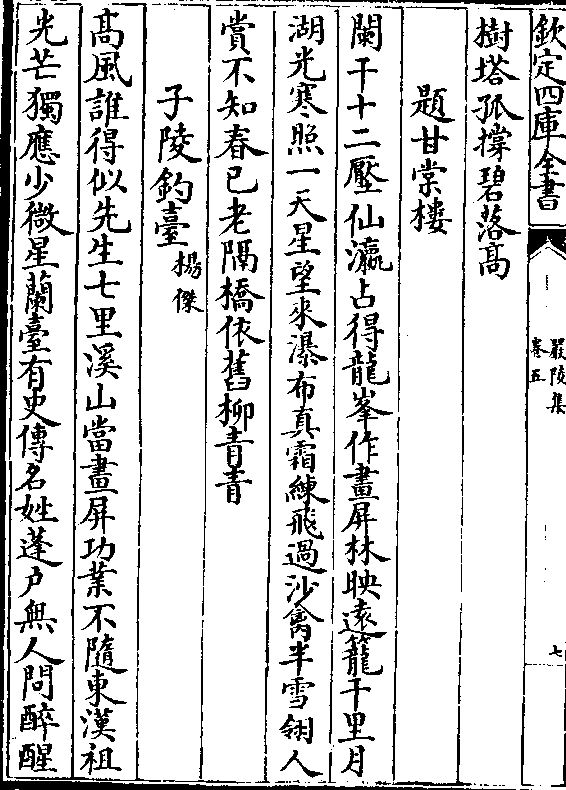 欽定四庫全書
嚴陵集
卷五
七
樹塔孤撐碧落髙
題甘棠樓
闌干十二壓仙瀛占得龍峯作畫屏林映遠籠千里月
湖光寒照一天星望來瀑布真霜練飛過沙禽半雪翎人
賞不知春已老隔橋依舊柳青青
子陵釣臺楊傑
髙風誰得似先生七里溪山當畫屏功業不隨東漢祖
光芒獨應少微星蘭臺有史傳名姓蓬户無人問醉醒